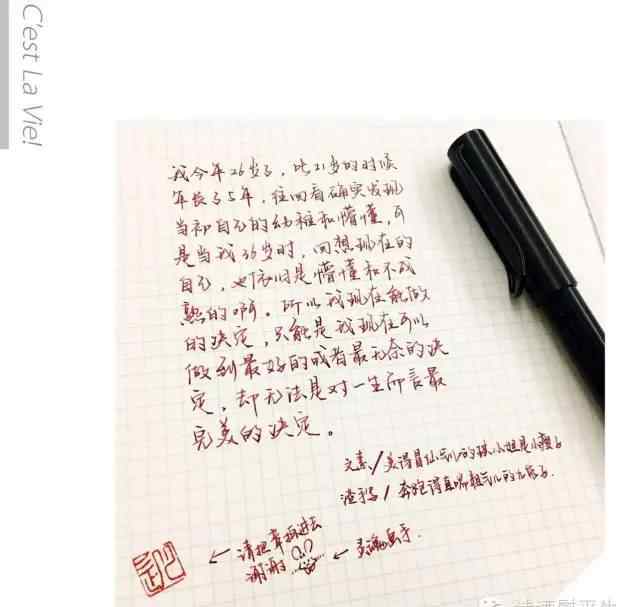 C'est La Vie!
我今年26岁了，比21岁的时候
年长了5年，往回看确实发现
当初自己的幼稚和懵懂，可
是当我36岁时，回想现在的
自己，也依旧是懵懂和不成
熟的啊。所以我现在能做
的决定，只能是我现在可以
做到最好的或者最无奈的决
定，却无法是对一生而言最
完美的决定。
文素/美得冒仙气儿的 小姐是小瘦子
渣利/奔跑得直喘粗气儿的
← 请把章掰过去
谢谢 ← 灵魂画手.
记